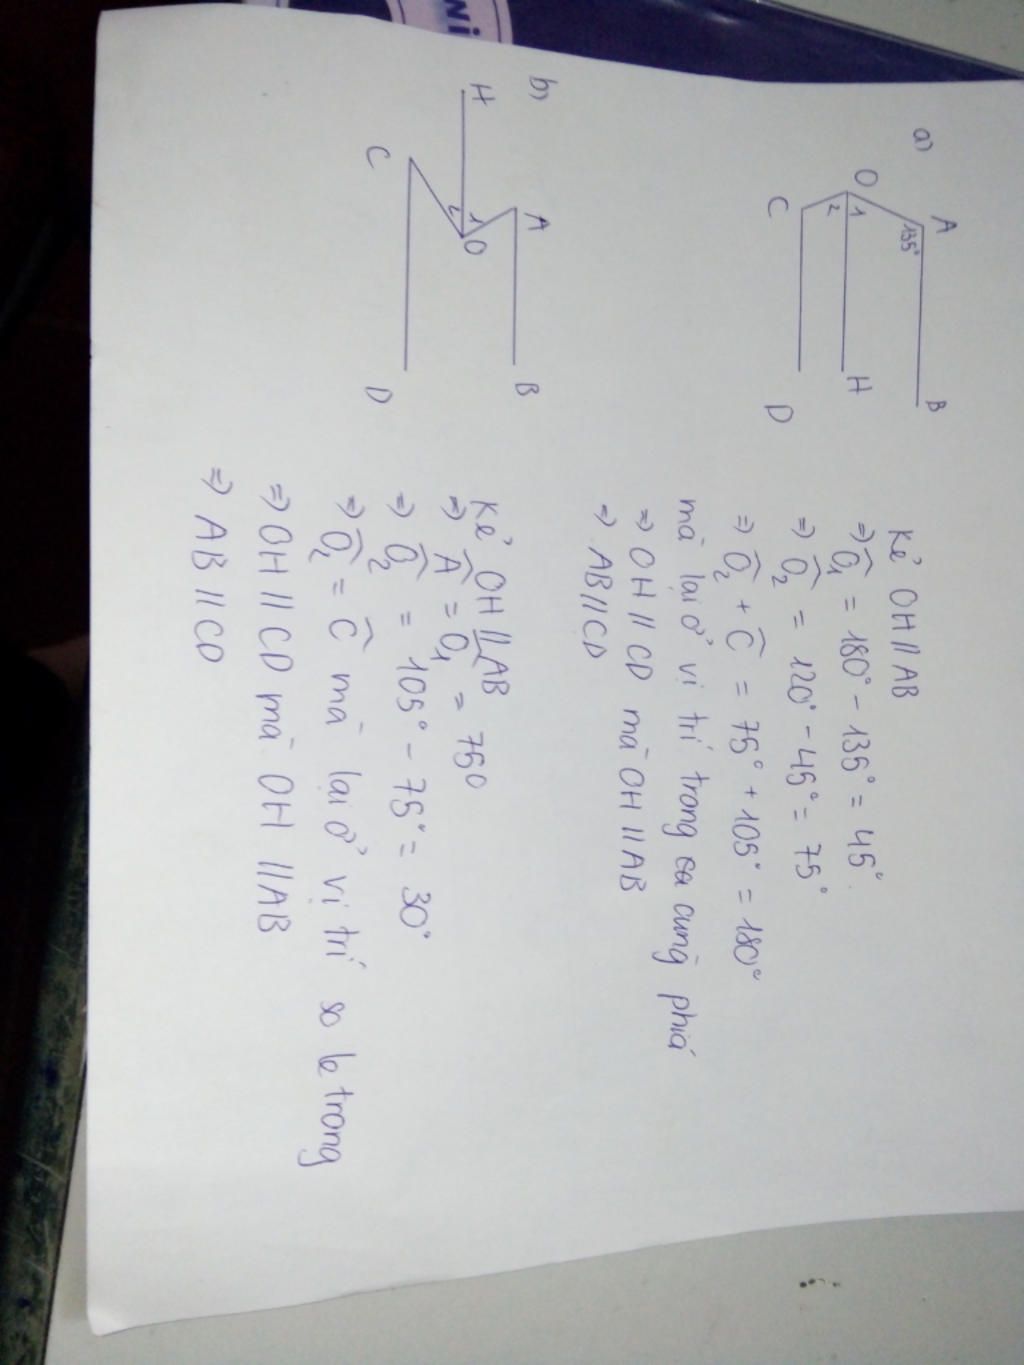 a)
A
135°
B
O
1
2
H
C
D
Kẻ OH // AB
=> Ô₁ = 180° - 135° = 45°
=> Ô₂ = 120° - 45° = 75°
=> Ô₂ + Ĉ = 75° + 105° = 180°
mà lại ở vị trí trong cùng phía
=> OH // CD mà OH // AB
=> AB // CD
b)
A
B
H
1
2
O
C
D
Kẻ OH // AB
=> Â = Ô₁ = 75°
=> Ô₂ = 105° - 75° = 30°
=> Ô₂ = Ĉ mà lại ở vị trí so le trong
=> OH // CD mà OH // AB
=> AB // CD